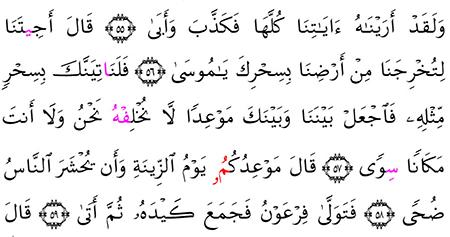 وَلَقَدْ أَرَيْنَٰهُ ءَايَٰتِنَا كُلَّهَا فَكَذَّبَ وَأَبَىٰ ﴿٥٥﴾ قَالَ أَجِيتَنَا
لِتُخْرِجَنَا مِنْ أَرْضِنَا بِسِحْرِكَ يَٰمُوسَىٰ ﴿٥٦﴾ فَلَنَاتِيَنَّكَ بِسِحْرٍ
مِّثْلِهِۦ فَٱجْعَلْ بَيْنَنَا وَبَيْنَكَ مَوْعِدًا لَّا نُخْلِفْهُ نَحْنُ وَلَا أَنتَ
مَكَانًا سِوًى ﴿٥٧﴾ قَالَ مَوْعِدُكُمُۥ يَوْمُ ٱلزِّينَةِ وَأَن يُحْشَرَ ٱلنَّاسُ
ضُحًى ﴿٥٨﴾ فَتَوَلَّىٰ فِرْعَوْنُ فَجَمَعَ كَيْدَهُۥ ثُمَّ أَتَىٰ ﴿٥٩﴾ قَالَ